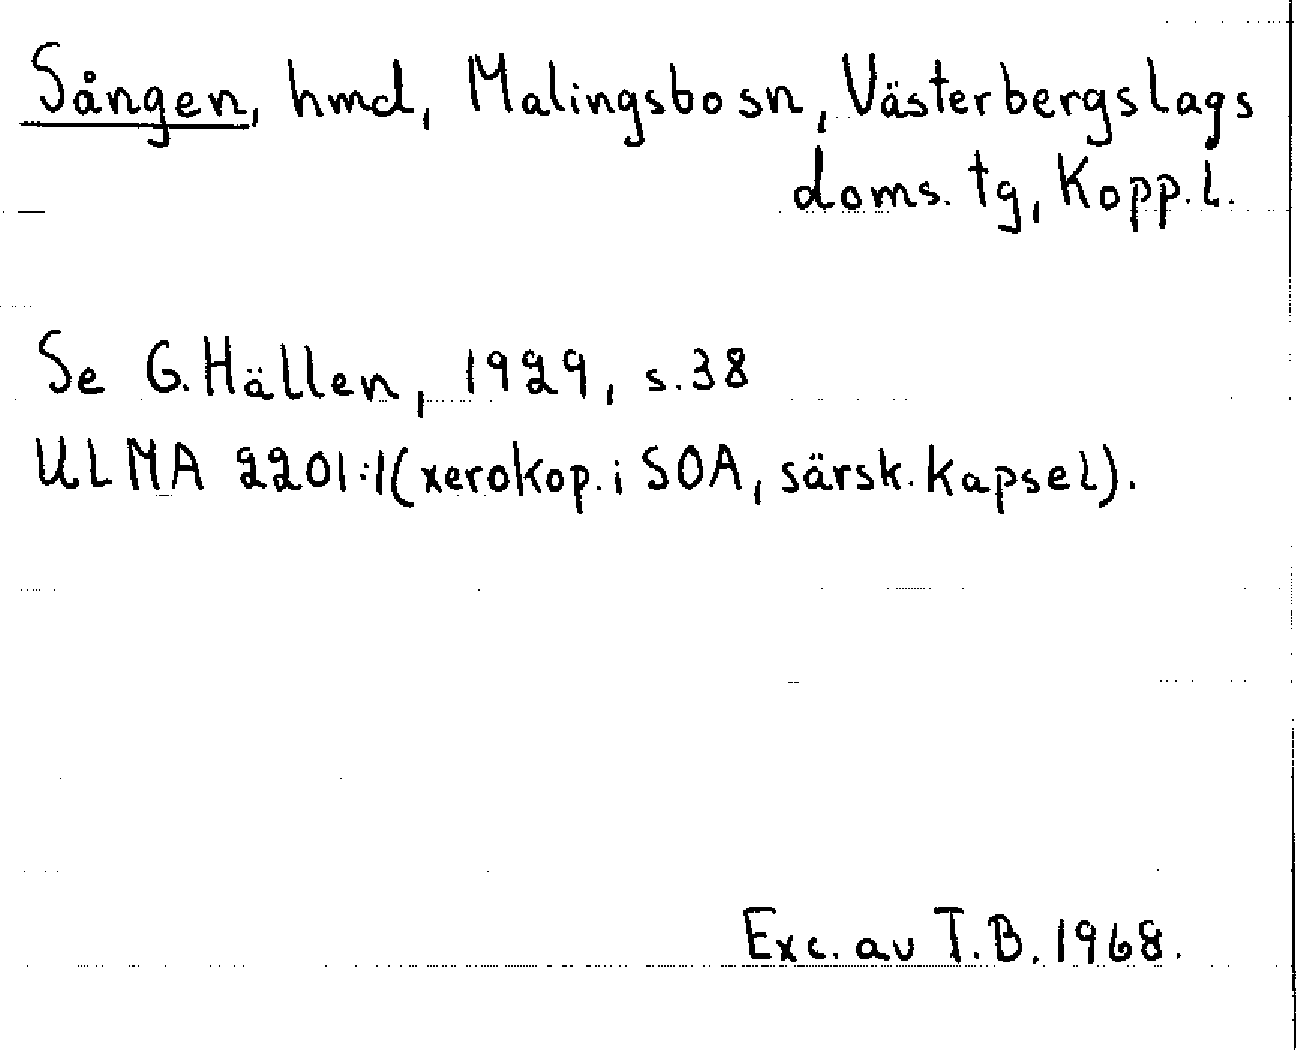 Sången, hmd, Malingsbo sn, Västerbergslags
doms. tg, Kopp. l.
Se G. Hällen, 1929, s. 38
ULMA 2201:1 (xerokop. i SOA, särsk. kapsel).
Exc. av T.B. 1968.